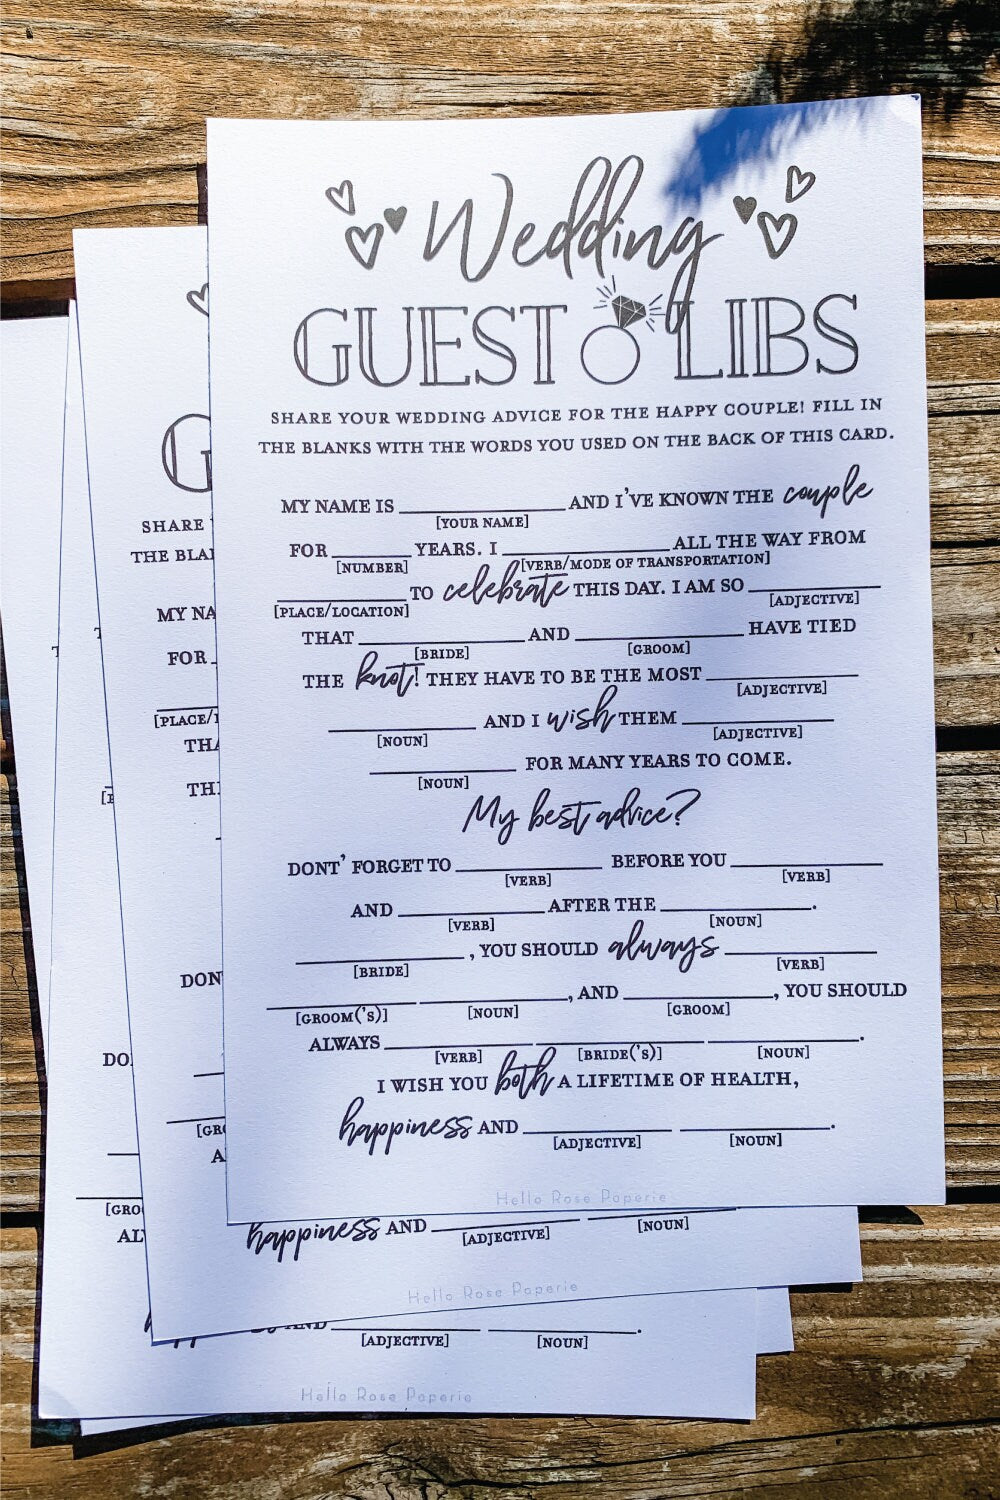 Wedding
GUEST LIBS
SHARE YOUR WEDDING ADVICE FOR THE HAPPY COUPLE! FILL IN
THE BLANKS WITH THE WORDS YOU USED ON THE BACK OF THIS CARD.
MY NAME IS ____________ AND I'VE KNOWN THE couple
[YOUR NAME]
FOR ______ YEARS. I ____________ ALL THE WAY FROM
[NUMBER] [VERB/MODE OF TRANSPORTATION]
____________ TO celebrate THIS DAY. I AM SO ____________
[PLACE/LOCATION] [ADJECTIVE]
THAT ____________ AND ____________ HAVE TIED
[BRIDE] [GROOM]
THE knot! THEY HAVE TO BE THE MOST ____________
[ADJECTIVE]
____________ AND I wish THEM ____________
[NOUN] [ADJECTIVE]
____________ FOR MANY YEARS TO COME.
[NOUN]
My best advice?
DONT' FORGET TO ____________ BEFORE YOU ____________
[VERB] [VERB]
AND ____________ AFTER THE ____________.
[VERB] [NOUN]
____________, YOU SHOULD always ____________
[BRIDE] [VERB]
____________ ____________, AND ____________, YOU SHOULD
[GROOM('S)] [NOUN] [GROOM]
ALWAYS ____________ ____________ ____________.
[VERB] [BRIDE('S)] [NOUN]
I WISH YOU both A LIFETIME OF HEALTH,
happiness AND ____________ ____________.
[ADJECTIVE] [NOUN]
Hello Rose Paperie
G
SHARE
THE BLA
MY NA
FOR
[PLACE/
THA
TH
DON
[GR
A
happiness AND ____________ ____________
[ADJECTIVE] [NOUN]
Hello Rose Paperie
DO
[GRO
AL
AND ____________ ____________.
[ADJECTIVE] [NOUN]
Hello Rose Paperie